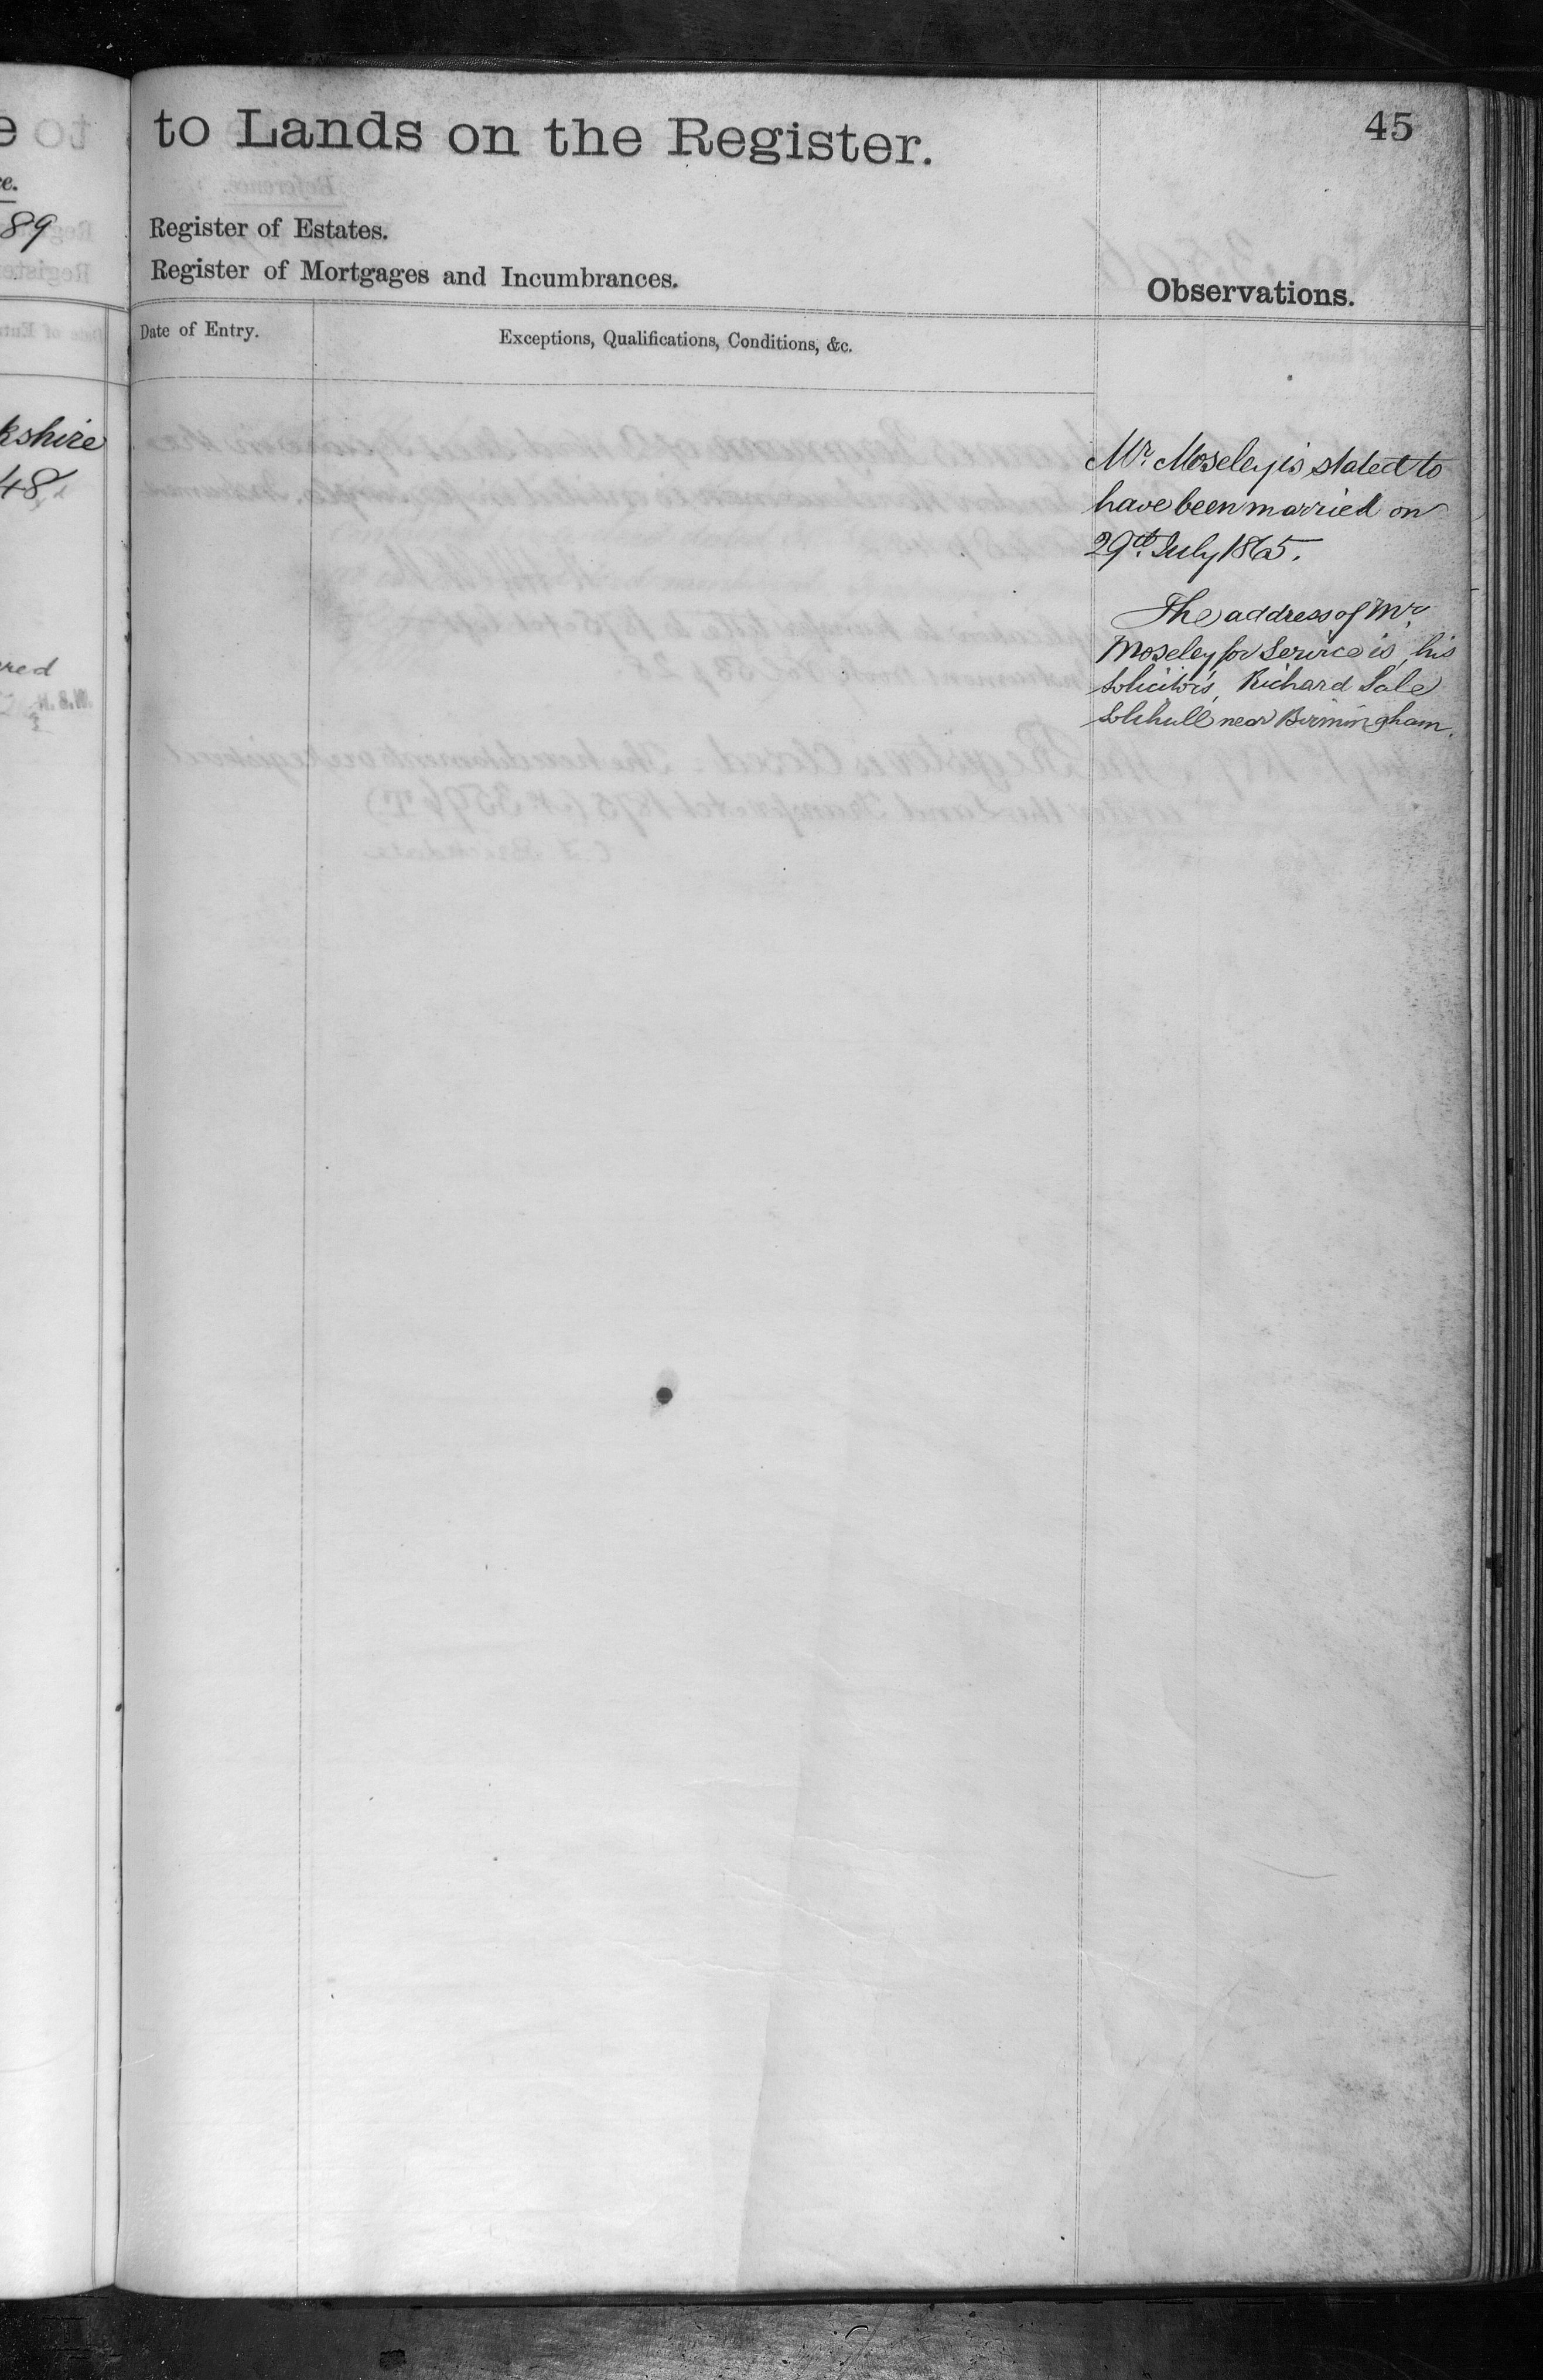 to Lands on the Register.
45
Register of Estates.
Register of Mortgages and Incumbrances.
Observations.
Date of Entry.
Exceptions, Qualifications, Conditions, &c.
Mr. Moseley is stated to
have been married on
29th. July 1865.
The address of Mr.
Moseley for Service is, his
Solicitor's, Richard Sale
Solihull near Birmingham.
e
ce.
89
kshire
48
red